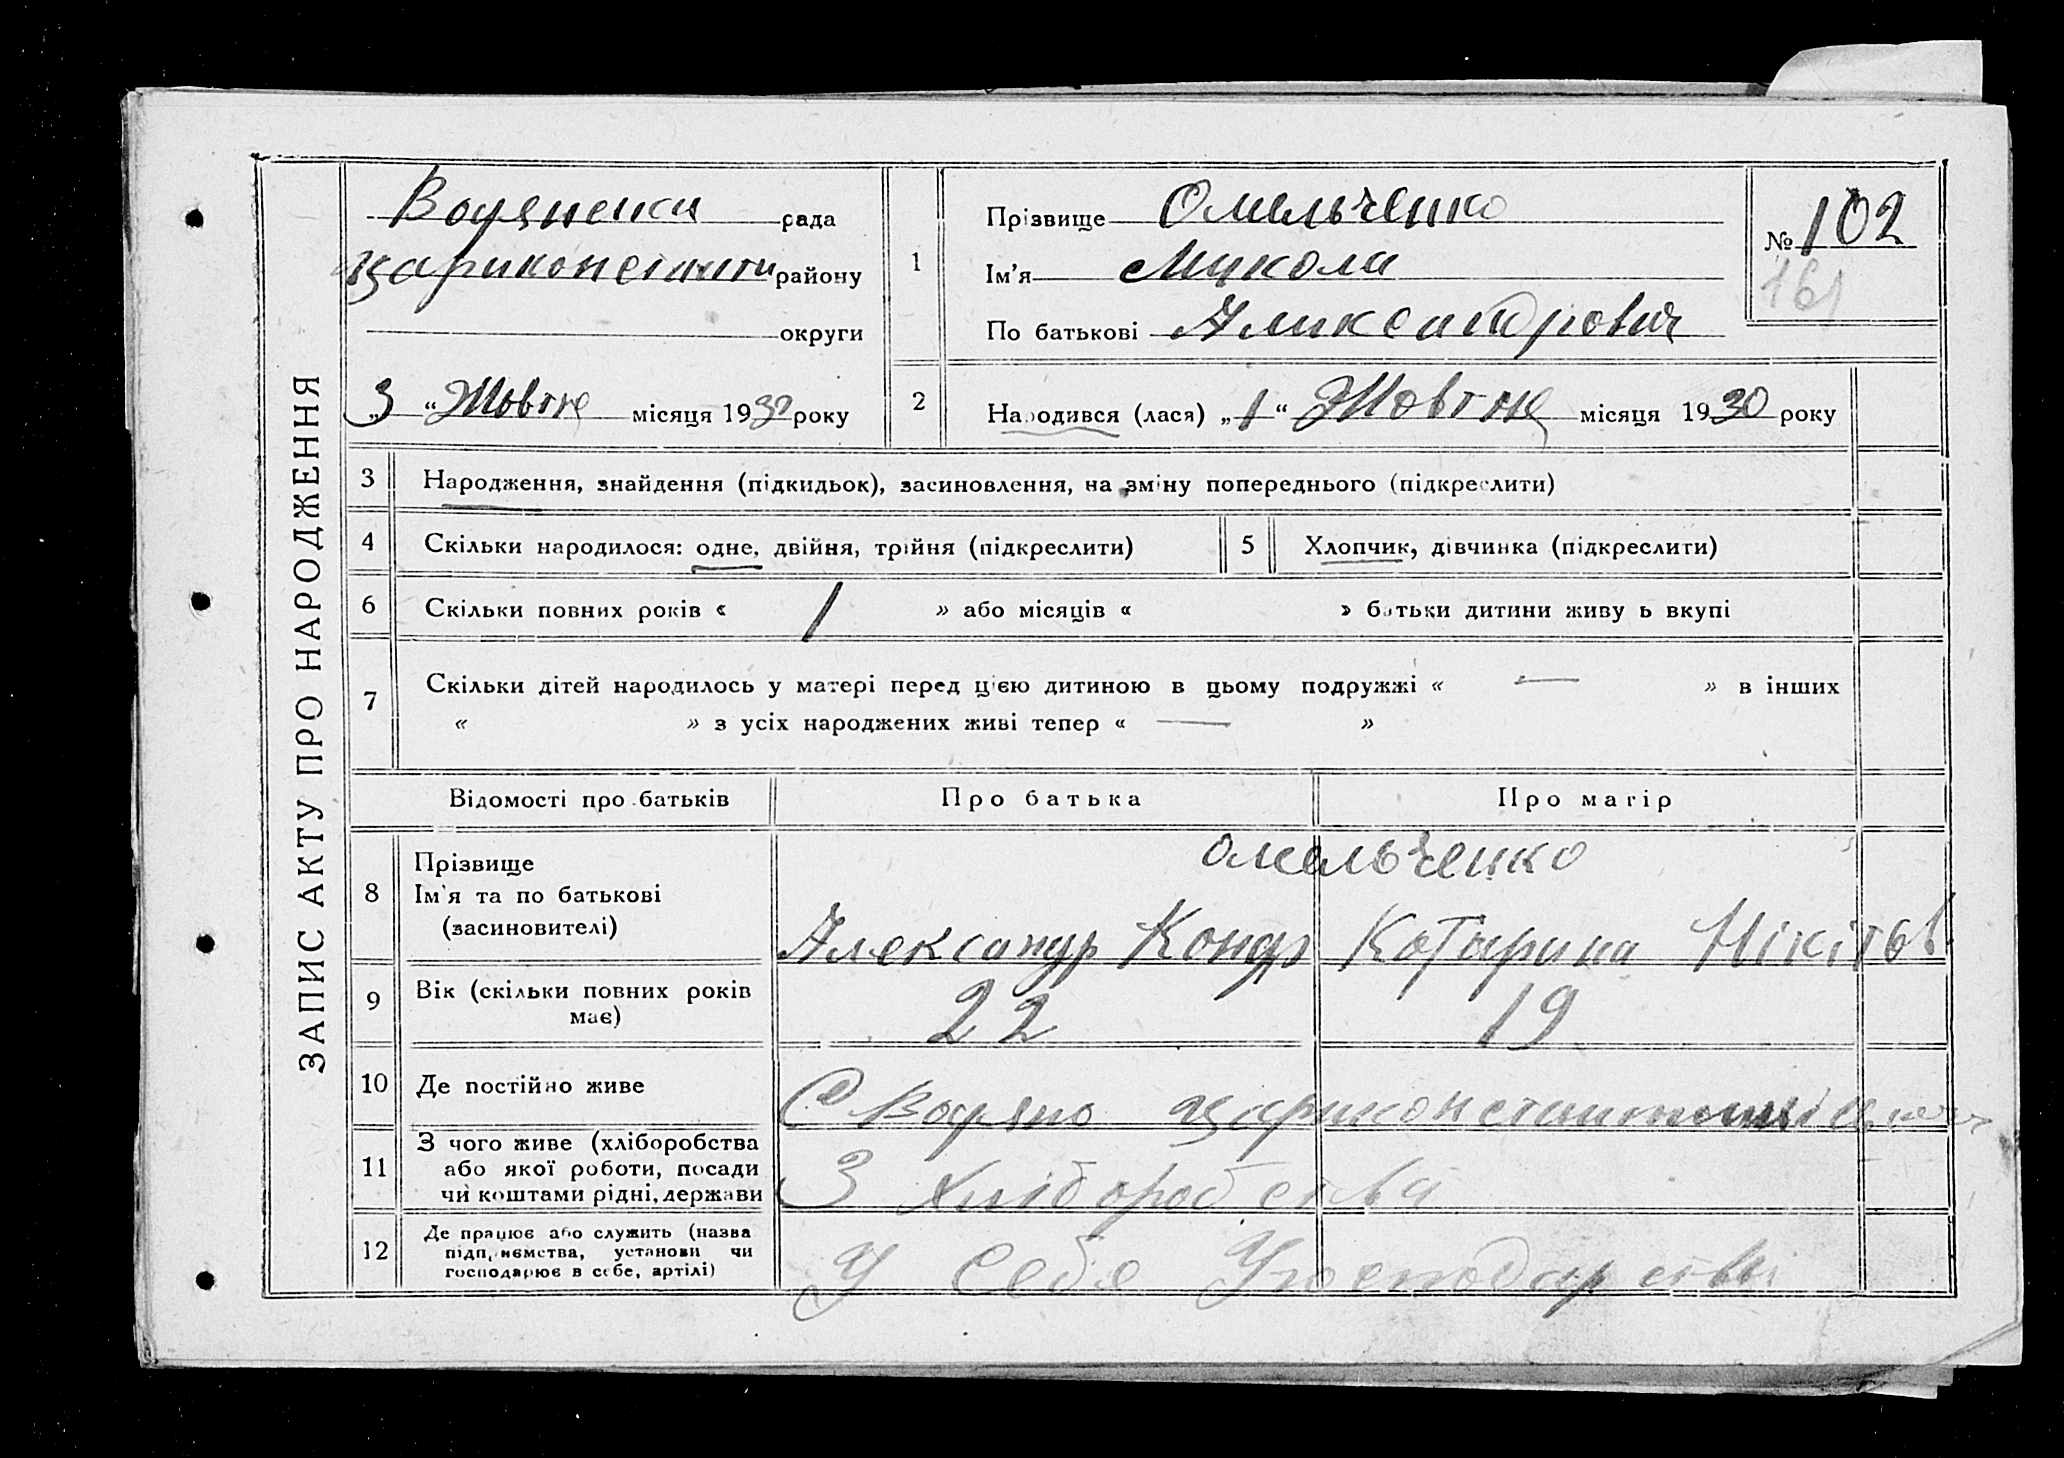 ЗАПИС АКТУ ПРО НАРОДЖЕННЯ
Водянська рада
Цариконстанти району
округи
„3“ Жовтня місяця 1930 року
1 Прізвище Омельченко
Ім'я Микола
По батькові Александрович
№ 102
161
2 Народився (лася) „1“ Жовтня місяця 1930 року
3 Народження, знайдення (підкидьок), засиновлення, на зміну попереднього (підкреслити)
4 Скільки народилося: одне, двійня, трійня (підкреслити)
5 Хлопчик, дівчинка (підкреслити)
6 Скільки повних років « 1 » або місяців « » батьки дитини живуть вкупі
7 Скільки дітей народилось у матері перед цією дитиною в цьому подружжі « — » в інших
« » з усіх народжених живі тепер « — »
Відомості про батьків Про батька Про матір
8 Прізвище
Ім'я та по батькові
(засиновителі)
Омельченко
Александр Кондр Катарина Нікітов
9 Вік (скільки повних років
має)
22 19
10 Де постійно живе
С Водяно
11 З чого живе (хліборобства
або якої роботи, посади
чи коштами рідні, держави
З Хліборобства
12 Де працює або служить (назва
підприємства, установи чи
господарює в себе, артілі)
У себе У господарстві